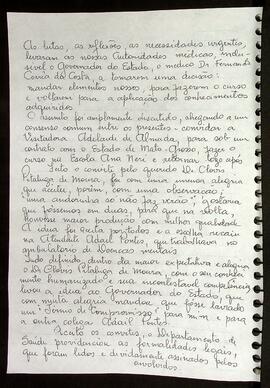 As lutas, as reflexões, as necessidades urgentes,
levaram as nossas Autoridades médicas, inclu-
sivel o Governador do Estado, o médico Dr Fernando
Corrêa da Costa, a tomarem uma decisão:
mandar elementos nossos, para fazerem o curso
e voltarem para a aplicação dos conhecimentos
adquiridos.
O assunto foi amplamente discutido, chegando a um
consenso comum entre os presentes: convidar a
Visitadora Adelaide de Almeida, para sob um
contrato com o Estado de Mato-Grosso, fazer o
curso na Escola Ana Neri e retornar logo após
Feito o convite pelo querido Dr. Clovis
Pitaluga de Moura, foi com uma imensa alegria
que aceitei, porém, com uma observação:
"uma andorinha só não faz verão", gostaria
que fôssemos em duas, para que na volta,
houvesse maior produção com melhor qualidade.
A idéia foi aceita por todos e a escolha recaiu
na Atendente Adail Fontes, que trabalhava no
ambulatório de Doenças mentais.
Tudo definido, dentro da maior expectativa e alegria
o Dr Clovis Pitaluga de Moura, com o seu conteúdo
muito humanizado e sua incontestável competência
levou a idéia ao Governador do Estado, que
com muita alegria mandou que fosse lavrado
um "Termo de Compromisso" para mim e para
a outra colega Adail Fontes.
Aceito os convites, o Departamento de
Saúde providenciou as formalidades legais,
que foram lidos e devidamente assinados pelos
envolvidos